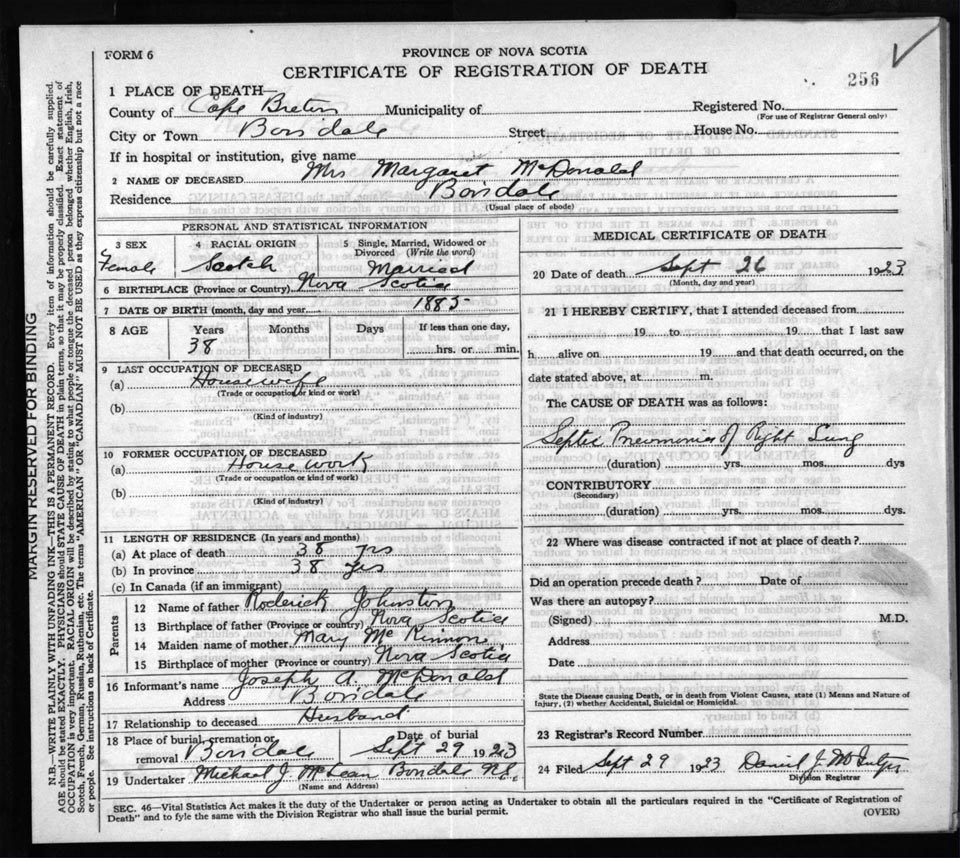 FORM 6
PROVINCE OF NOVA SCOTIA
CERTIFICATE OF REGISTRATION OF DEATH
256
1 PLACE OF DEATH—
County of Cape Breton Municipality of
Registered No.
(For use of Registrar General only)
City or Town Boisdale Street House No.
If in hospital or institution, give name
2 NAME OF DECEASED Mrs Margaret McDonald
Residence Boisdale
(Usual place of abode)
PERSONAL AND STATISTICAL INFORMATION
3 SEX
Female
4 RACIAL ORIGIN
Scotch
5 Single, Married, Widowed or Divorced (Write the word)
Married
6 BIRTHPLACE (Province or Country) Nova Scotia
7 DATE OF BIRTH (month, day and year) 1885
8 AGE Years Months Days If less than one day,
38 hrs. or min.
9 LAST OCCUPATION OF DECEASED
(a) Housewife
(Trade or occupation or kind or work)
(b)
(Kind of industry)
10 FORMER OCCUPATION OF DECEASED
(a) House work
(Trade or occupation or kind of work)
(b)
(Kind of industry)
11 LENGTH OF RESIDENCE (In years and months)
(a) At place of death 38 yrs
(b) In province 38 yrs
(c) In Canada (if an immigrant)
Parents
12 Name of father Roderick Johnston
13 Birthplace of father (Province or country) Nova Scotia
14 Maiden name of mother Mary McKinnon
15 Birthplace of mother (Province or country) Nova Scotia
16 Informant's name Joseph A. McDonald
Address Boisdale
17 Relationship to deceased Husband
18 Place of burial, cremation or removal Boisdale
Date of burial Sept 29 1923
19 Undertaker Michael J. McLean Boisdale N.S.
(Name and Address)
MEDICAL CERTIFICATE OF DEATH
20 Date of death Sept 26 1923
(Month, day and year)
21 I HEREBY CERTIFY, that I attended deceased from
19 to 19 that I last saw
h alive on 19 and that death occurred, on the
date stated above, at m.
The CAUSE OF DEATH was as follows:
Septic Pneumonia of Right Lung
(duration) yrs. mos. dys
CONTRIBUTORY
(Secondary)
(duration) yrs. mos. dys.
22 Where was disease contracted if not at place of death?
Did an operation precede death? Date of
Was there an autopsy?
(Signed) M.D.
Address
Date
State the Disease causing Death, or in death from Violent Causes, state (1) Means and Nature of
Injury, (2) whether Accidental, Suicidal or Homicidal.
23 Registrar's Record Number
24 Filed Sept 29 1923 Daniel J.
Division Registrar
SEC. 46—Vital Statistics Act makes it the duty of the Undertaker or person acting as Undertaker to obtain all the particulars required in the "Certificate of Registration of
Death" and to fyle the same with the Division Registrar who shall issue the burial permit.
(OVER)
MARGIN RESERVED FOR BINDING
N.B.—WRITE PLAINLY WITH UNFADING INK—THIS IS A PERMANENT RECORD. Every item of information should be carefully supplied.
AGE should be stated EXACTLY. PHYSICIANS should STATE CAUSE OF DEATH in plain terms, so that it may be properly classified. Exact statement of
OCCUPATION is very important. RACIAL ORIGIN will be described by stating to what people or tongue the deceased person belonged whether English, Irish,
Scotch, French, German, Russian, Ruthenian, etc. The terms "AMERICAN" OR "CANADIAN" MUST NOT BE USED as they express citizenship but not a race
or people. See instructions on back of Certificate.